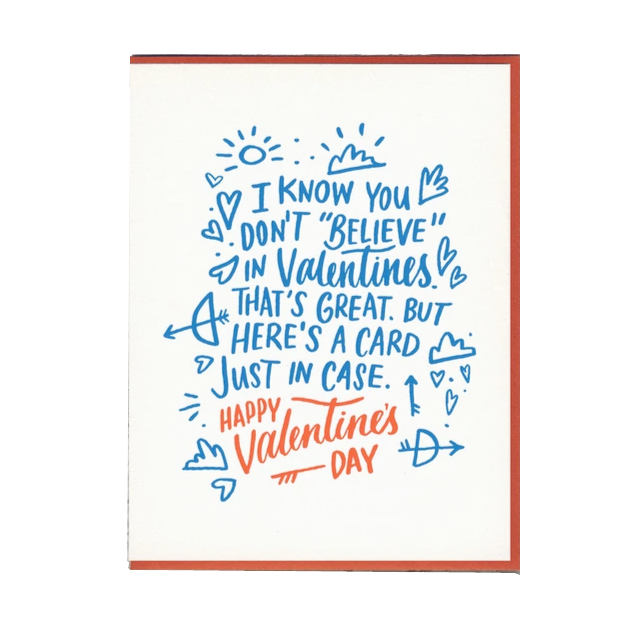 I KNOW YOU
DON'T "BELIEVE"
IN Valentines.
THAT'S GREAT. BUT
HERE'S A CARD
JUST IN CASE.
HAPPY
Valentine's
DAY